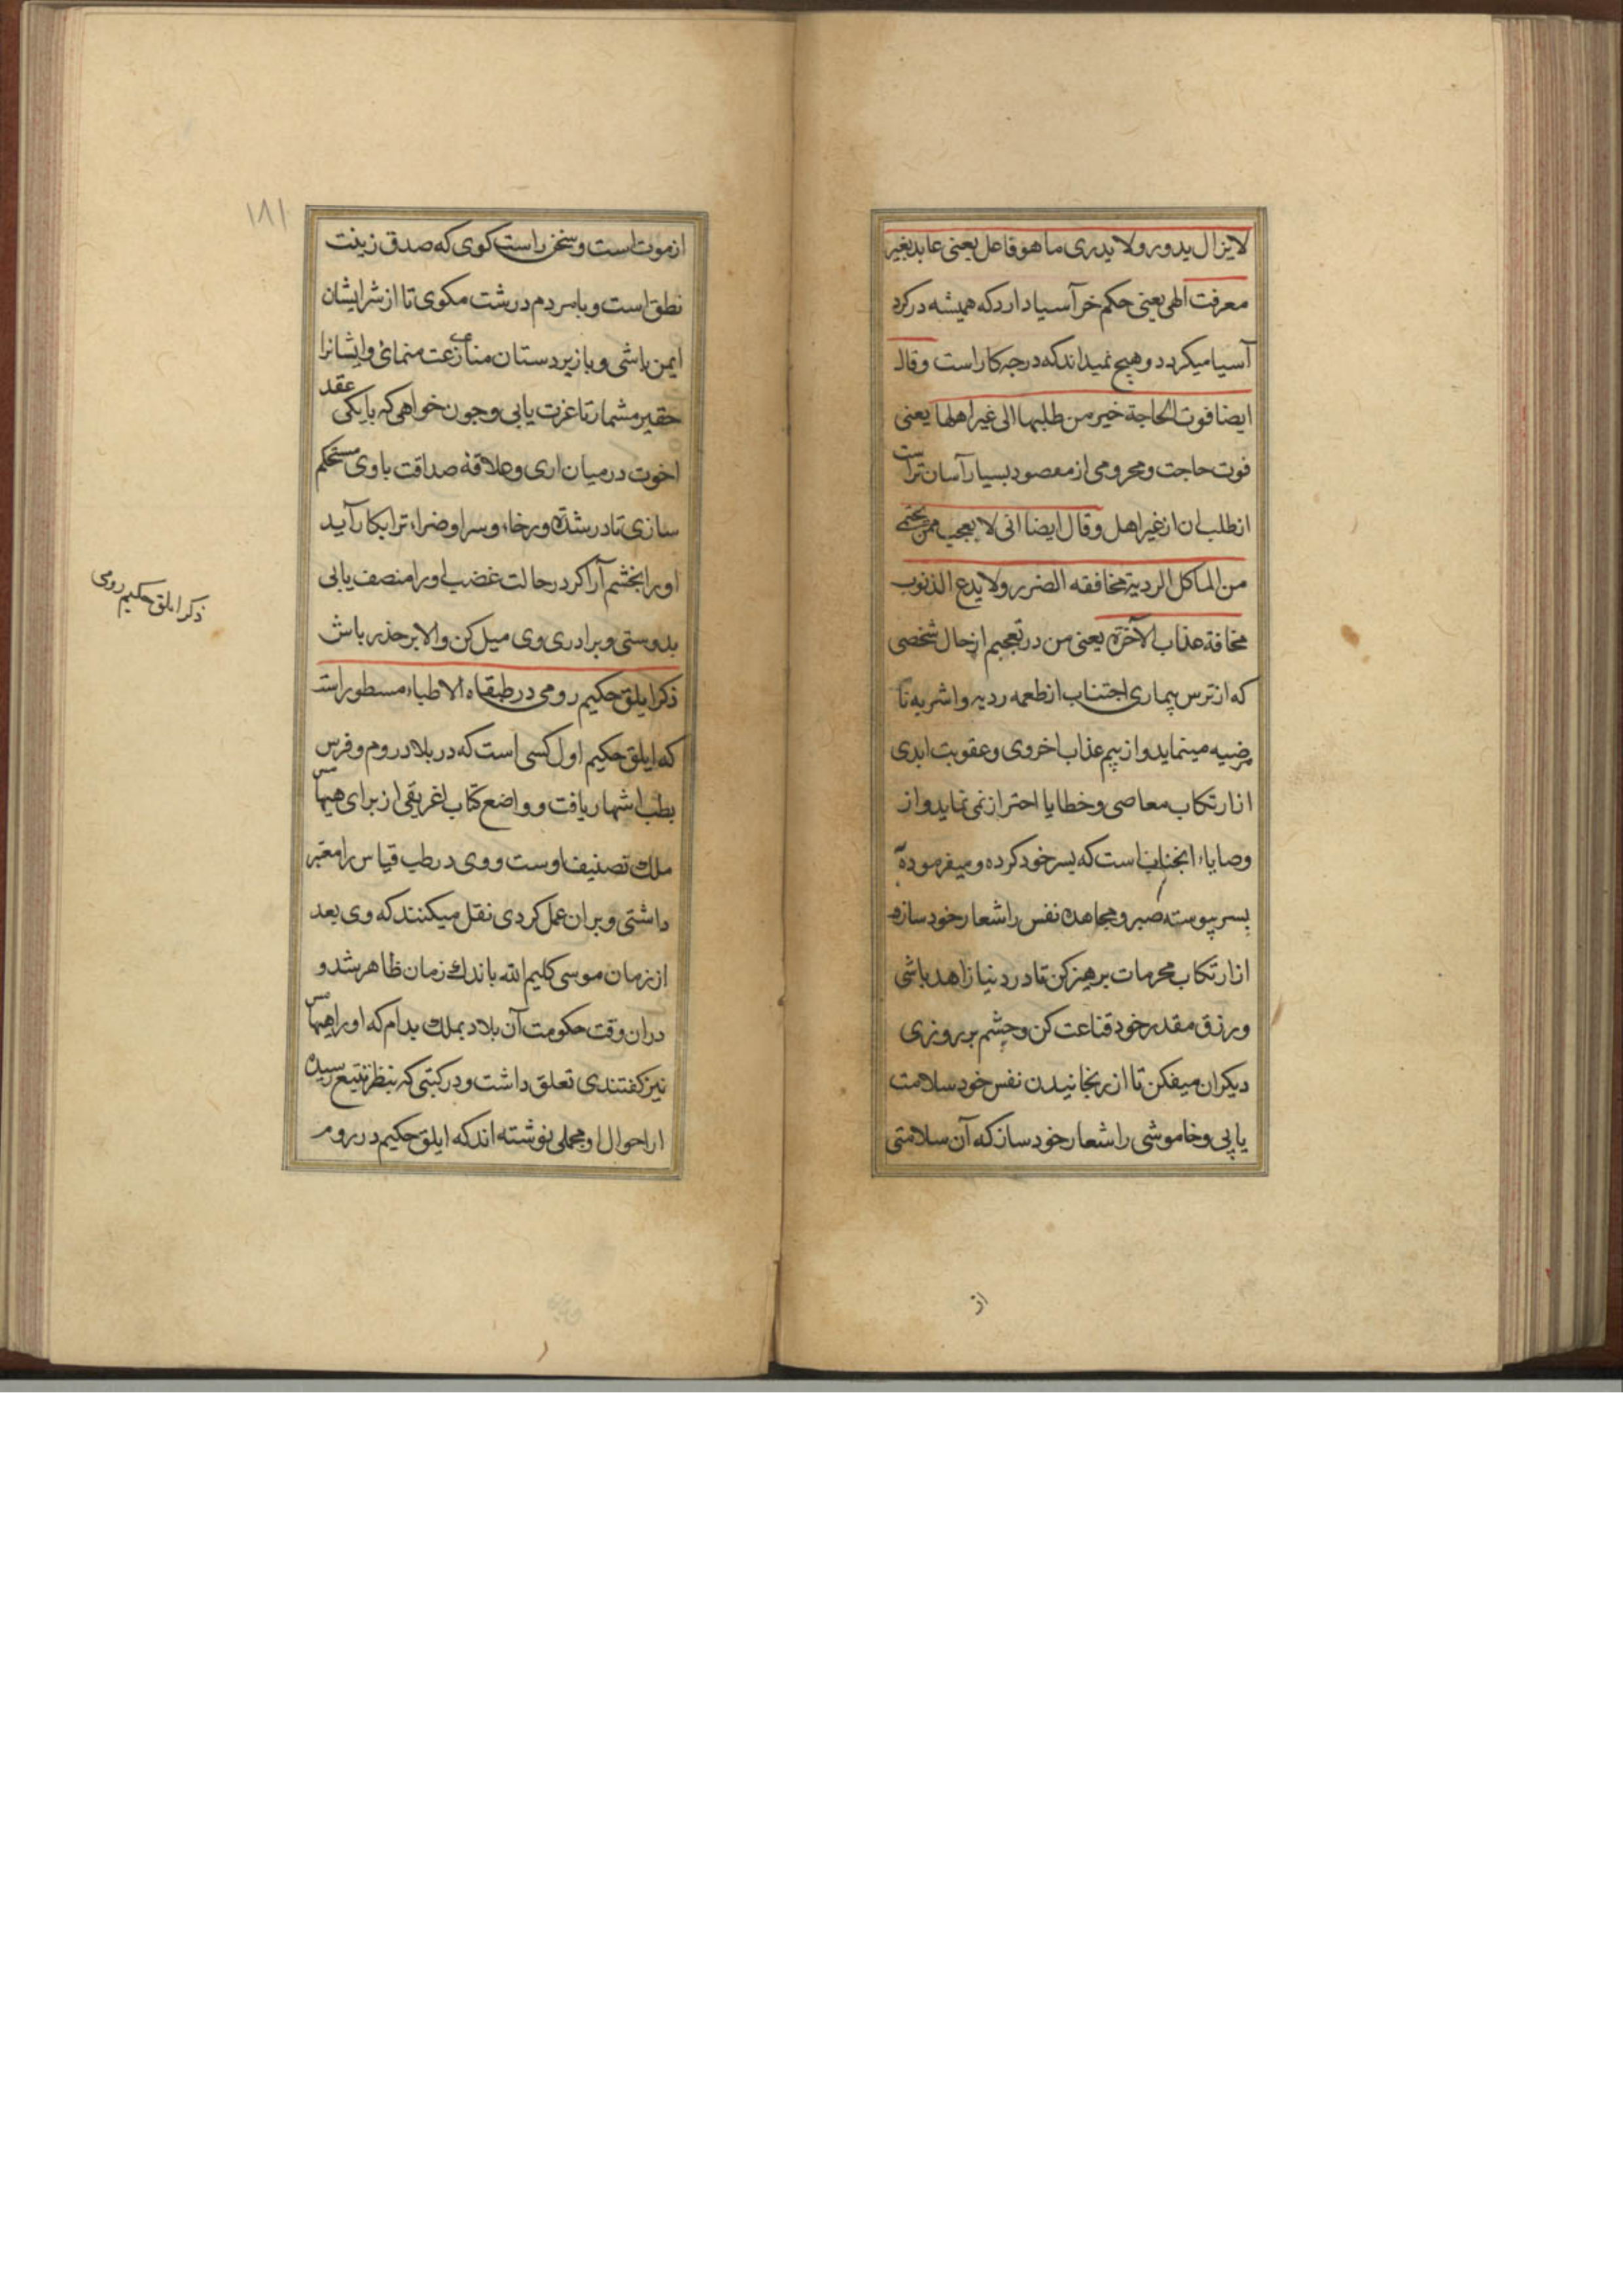 لایزال یدور ولا یدری ما هو فاعل یعنی عابد بغیر
معرفت الهی یعنی حکم خر آسیا دارد که همیشه در کرد
آسیا میکردد و هیچ نمیداند که در چه کار است وقال
ایضا فوت الحاجة خیر من طلبها الی غیر اهلها یعنی
فوت حاجت و محرومی از مقصود بسیار آسان تر است
از طلب ان از غیر اهل وقال ایضا انی لا یعجب ممن یحتمی
من الماکل الردیة مخافقه الضرر ولا یدع الذنوب
مخافة عذاب الآخرة یعنی من در تعجبم از حال شخصی
که از ترس بیماری اجتناب از طعمه ردیه و اشربه نا
مرضیه مینماید و از بیم عذاب اخروی و عقوبت ابدی
از ارتکاب معاصی و خطایا احتراز نمی نماید و از
وصایاء انجناب است که بسر خود کرده و میفرموده
بسر پیوسته صبر و مجاهده نفس را شعار خود سازه
از ارتکاب محرمات برهیز کن تا در دنیا زاهد باشی
و رزق مقدر خود قناعت کن و چشم بر روزی
دیکران میفکن تا از رنجانیدن نفس خود سلامت
یابی و خاموشی را شعار خود ساز که آن سلامتی
از
۱۸۱
از موت است و سخن راست کوی که صدق زینت
نطق است و با مردم درشت مکوی تا از شر ایشان
ایمن باشی و با زیردستان منازعت منمای و ایشانرا
حقیر مشمار تا عزت یابی و چون خواهی که با یکی عقد
اخوت در میان اری و علاقه صداقت با وی مستحکم
سازی تا در شدة و رخاء و سرا و ضراء ترا بکار آید
او را بخشم آر اکر در حالت غضب او را منصف یابی
بدوستی و برادری وی میل کن والا بر حذر باش
ذکر ایلق حکیم رومی در طبقاه الاطباء مسطور است
که ایلق حکیم اول کسی است که در بلاد روم و فرس
بطب اشتهار یافت و واضع کتاب اغریقی از برای هیماس
ملك تصنیف اوست و وی در طب قیاس را معتبر
داشتی و بر ان عمل کردی نقل میکنند که وی بعد
از زمان موسی کلیم الله باندك زمان ظاهر شد و
در ان وقت حکومت آن بلاد بملك بدام که او را هیماس
نیز کفتندی تعلق داشت و در کتبی که بنظر تتبع رسیده
از احوال او مجملی نوشته اند که ایلق حکیم در روم
ذکر ایلق حکیم رومی